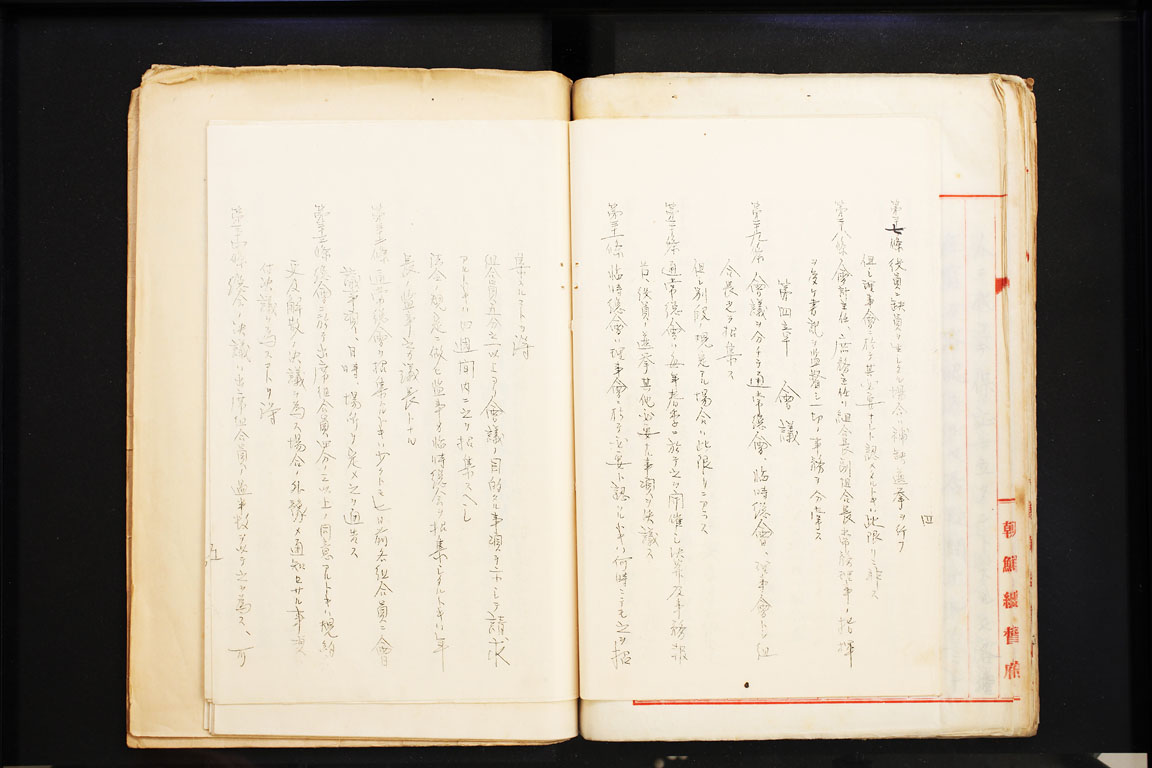 四
第二十七條 役員ニ缺員ヲ生シタル場合ハ補缺選擧ヲ行フ
但シ理事會ニ於テ其必要ナシト認メタルトキハ此限リニ非ス
第二十八條 會計主任、庶務主任ハ組合長、副組合長、常務理事ノ指揮
ヲ受ケ書記ヲ監督シ一切ノ事務ヲ分掌ス
第四章 會議
第二十九條 會議ヲ分チテ通常總會、臨時總會、理事會トシ組
合長之ヲ招集ス
但シ別段ノ規定アル場合ハ此限リニアラス
第三十條 通常總會ハ毎年春季ニ於テ之ヲ開催シ決算及事務報
告、役員ノ選擧其他必要ナル事項ヲ決議ス
第三十一條 臨時總會ハ理事會ニ於テ必要ト認メタルトキハ何時ニテモ之ヲ招
集スルコトヲ得
組合員五分ノ一以上ヨリ會議ノ目的タル事項ヲ示シテ請求
アルトキハ四週間內ニ之ヲ招集スヘシ
法令ノ規定ニ依リ監事カ臨時總會ヲ招集シタルトキハ年
長ノ監事之カ議長トナル
第三十二條 通常總會ヲ招集スルトキハ少クトモ七日前各組合員ニ會
議ノ事項、日時、場所ヲ定メ之ヲ通告ス
第三十三條 總會ニ於テ出席組合員四分ノ三以上ノ同意アルトキハ規約
變更及解散ノ決議ヲ爲ス場合ノ外豫メ通知セサル事項
ト雖決議ヲ爲スコトヲ得
第三十四條 總會ノ決議ハ出席組合員ノ過半數ヲ以テ之ヲ爲ス、可
五
朝鮮總督府